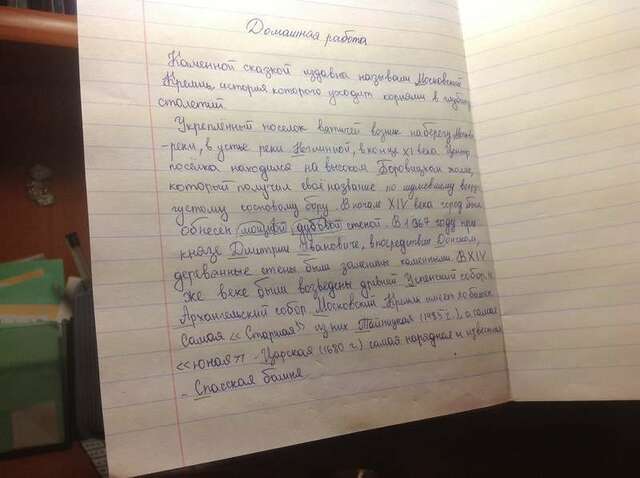 Домашняя работа
Каменной сказкой издавна называли Московский
Кремль, история которого уходит корнями в глубь
столетий.
Укреплённый поселок вятичей возник на берегу Москвы
-реки, в устье реки Неглинной, в конце XI века. Центр
посёлка находился на высоком Боровицком холме,
который получил своё название по шумевшему вокруг
густому сосновому бору. В начале XIV века город был
обнесен мощной дубовой стеной. В 1367 году при
князе Дмитрии Ивановиче, впоследствии Донском,
деревянные стены были заменены каменными. В XIV
же веке были возведены древний Успенский собор и
Архангельский собор. Московский Кремль имеет 20 башен.
Самая «Старшая» из них Тайницкая (1485 г.), а самая
«юная» - Царская (1680 г.) самая нарядная и известная
- Спасская башня